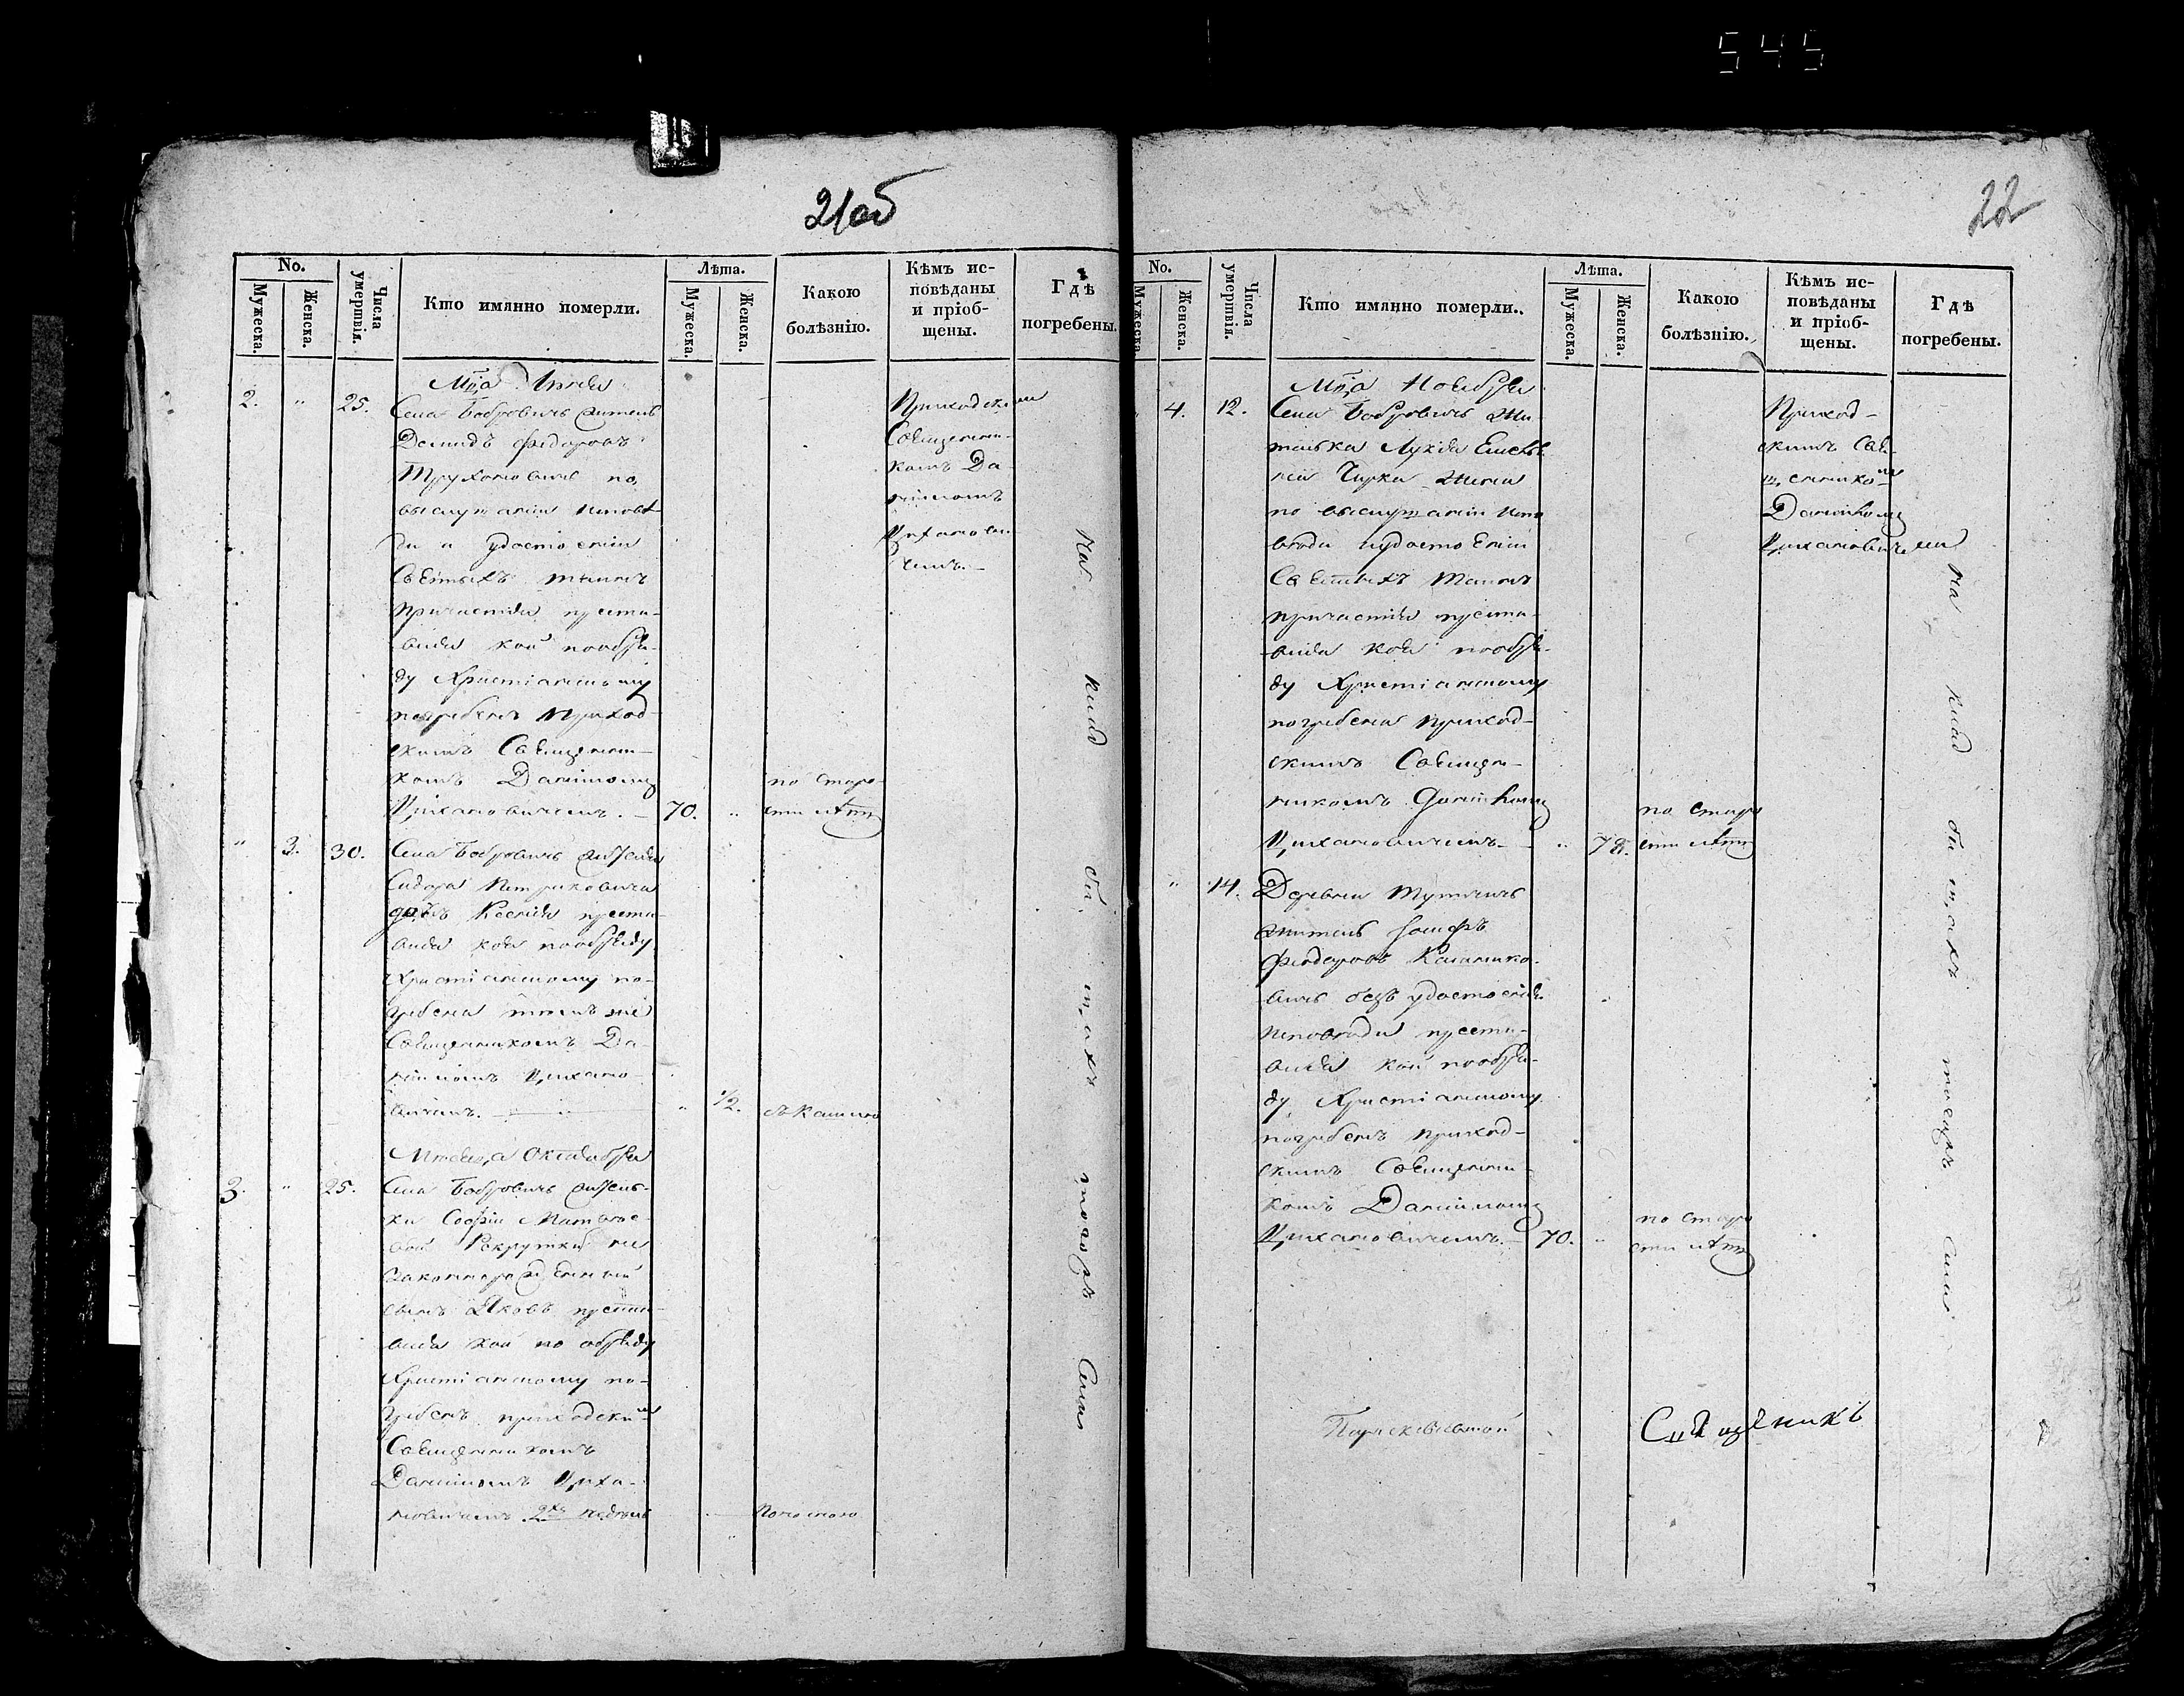 545
21об
No.
Мужеска.
Женска.
Числа умертвія.
Кто имянно померли.
Лѣта.
Мужеска.
Женска.
Какою
болѣзнію.
Кѣмъ ис-
повѣданы
и пріоб-
щены.
Гдѣ
погребены.
Мца
2.
"
25.
Села Бобровичъ житель
Демидъ Федоровъ
Трухановичъ по
выслушаніи исповѣ-
ди и удостоеніи
Святыхъ таинъ
причастія преста-
вися кой пообря-
ду Христіанскому
погребенъ приход-
скимъ Священни-
комъ Даніиломъ
Цихановичемъ. —
70.
"
по старо-
сти лѣтъ
Приходскимъ
Священни-
комъ Да-
ніиломъ
Цихановичемъ. —
"
3.
30.
Села Бобровичъ жителя
Сидора Петриковича
дочь Ксенія преста-
вися коя пообряду
Христіанскому по-
гребена тѣмъ же
Священникомъ Да-
ніиломъ Цихано-
вичемъ. —
"
1/2.
Мѣсяца Октября
3.
"
25.
Села Бобровичъ житель-
ки Софіи Матвѣе-
вой Рекрутки не
законнорожденный
сынъ Яковъ преста-
вися кой по обряду
Христіанскому по-
гребенъ приходскимъ
Священникомъ
Даніиломъ Циха-
новичемъ. 2хъ недѣль
поносного
на кладбищахъ тогожъ села
22
No.
Мужеска.
Женска.
Числа умертвія.
Кто имянно померли.
Лѣта.
Мужеска.
Женска.
Какою
болѣзнію.
Кѣмъ ис-
повѣданы
и пріоб-
щены.
Гдѣ
погребены.
Мца Ноября
"
4.
12.
Села Бобровичъ жи-
телька Лукія
Чирка жена
по выслушаніи испо-
вѣди и удостоеніи
Святыхъ Таинъ
причастія преста-
вися коя пообря-
ду Христіанскому
погребена приход-
скимъ Священ-
никомъ Даніиломъ
Цихановичемъ. —
"
78.
по старо
сти лѣтъ
Приход-
скимъ Свя-
щенникомъ
Даніиломъ
Цихановичемъ
"
14.
Деревни
житель Іосифъ
Федоровъ
вичъ безъ удостоенія
исповѣди преста-
вися кой пообря-
ду Христіанскому
погребенъ приход-
скимъ Священни-
комъ Даніиломъ
Цихановичемъ. —
70.
"
по старо
сти лѣтъ
на кладбищахъ тогожъ села
Священикъ